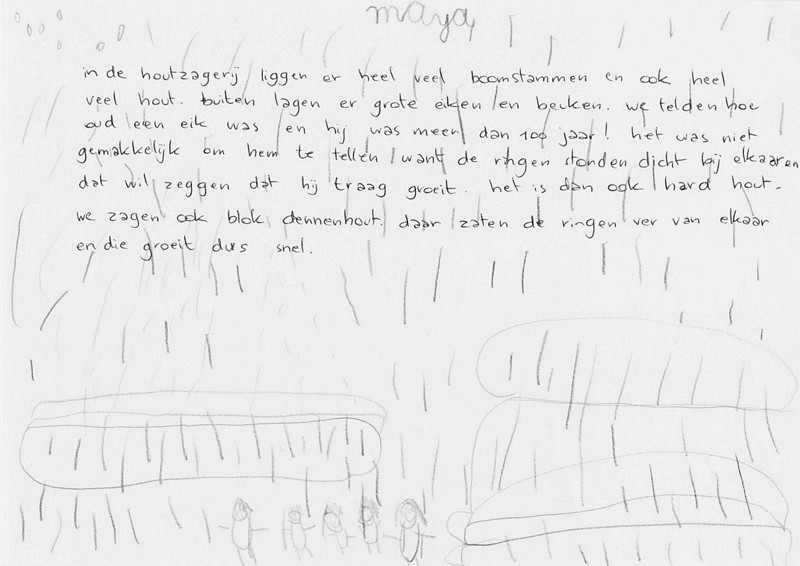 maya
in de houtzagerij liggen er heel veel boomstammen en ook heel
veel hout. buiten lagen er grote eiken en beuken. we telden hoe
oud een eik was en hij was meer dan 100 jaar! het was niet
gemakkelijk om hem te tellen want de ringen stonden dicht bij elkaaren
dat wil zeggen dat hij traag groeit. het is dan ook hard hout.
we zagen ook blok dennenhout. daar zaten de ringen ver van elkaar
en die groeit dus snel.